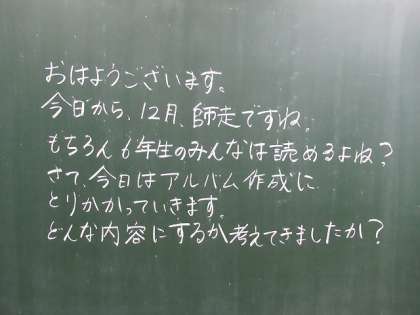 おはようございます。
今日から、12月、師走ですね。
もちろん6年生のみんなは読めるよね？
さて、今日はアルバム作成に
とりかかっていきます。
どんな内容にするか考えてきましたか？